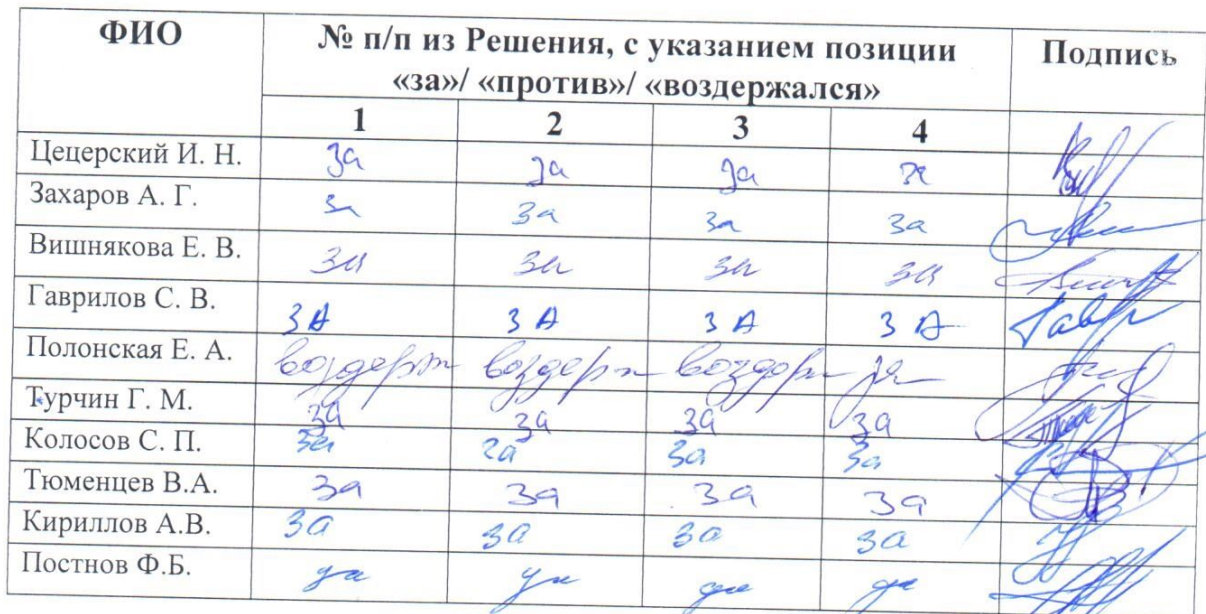 ФИО № п/п из Решения, с указанием позиции Подпись
«за»/ «против»/ «воздержался»
1 2 3 4
Цецерский И. Н. за за за за
Захаров А. Г. за за за за
Вишнякова Е. В. за за за за
Гаврилов С. В. ЗА ЗА ЗА ЗА
Полонская Е. А. воздерж воздерж воздерж за
Турчин Г. М. за за за за
Колосов С. П. за за за за
Тюменцев В.А. за за за за
Кириллов А.В. за за за за
Постнов Ф.Б. за за за за